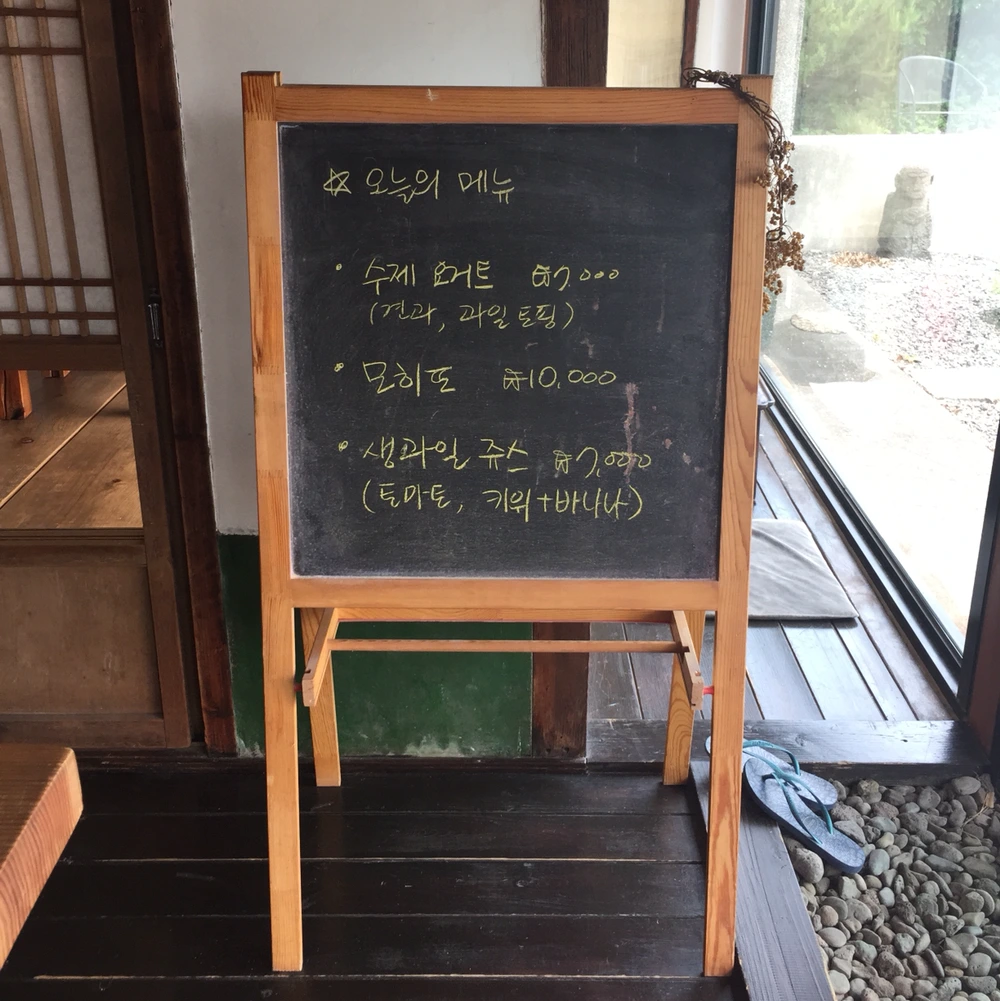 ☆ 오늘의 메뉴
• 수제 요거트 ₩7,000
(견과, 과일 토핑)
• 모히또 ₩10,000
• 생과일 쥬스 ₩7,000
(토마토, 키위+바나나)